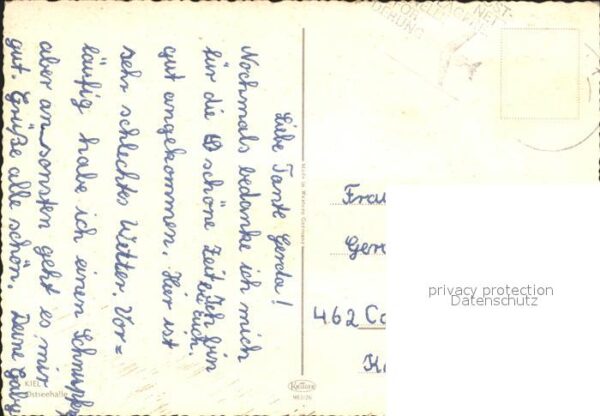 Liebe Tante Gerda!
Nochmals bedanke ich mich
für die schöne Zeit bei Euch. Ich bin
gut angekommen. Hier ist
sehr schlechtes Wetter. Vor=
läufig habe ich einen Schnupfen
aber ansonsten geht es mir
gut. Grüße alle schön. Deine Gaby
KIEL
Ostseehalle
Made in Western Germany
Krüger
Frau
Ger
462 Ca
privacy protection
Datenschutz